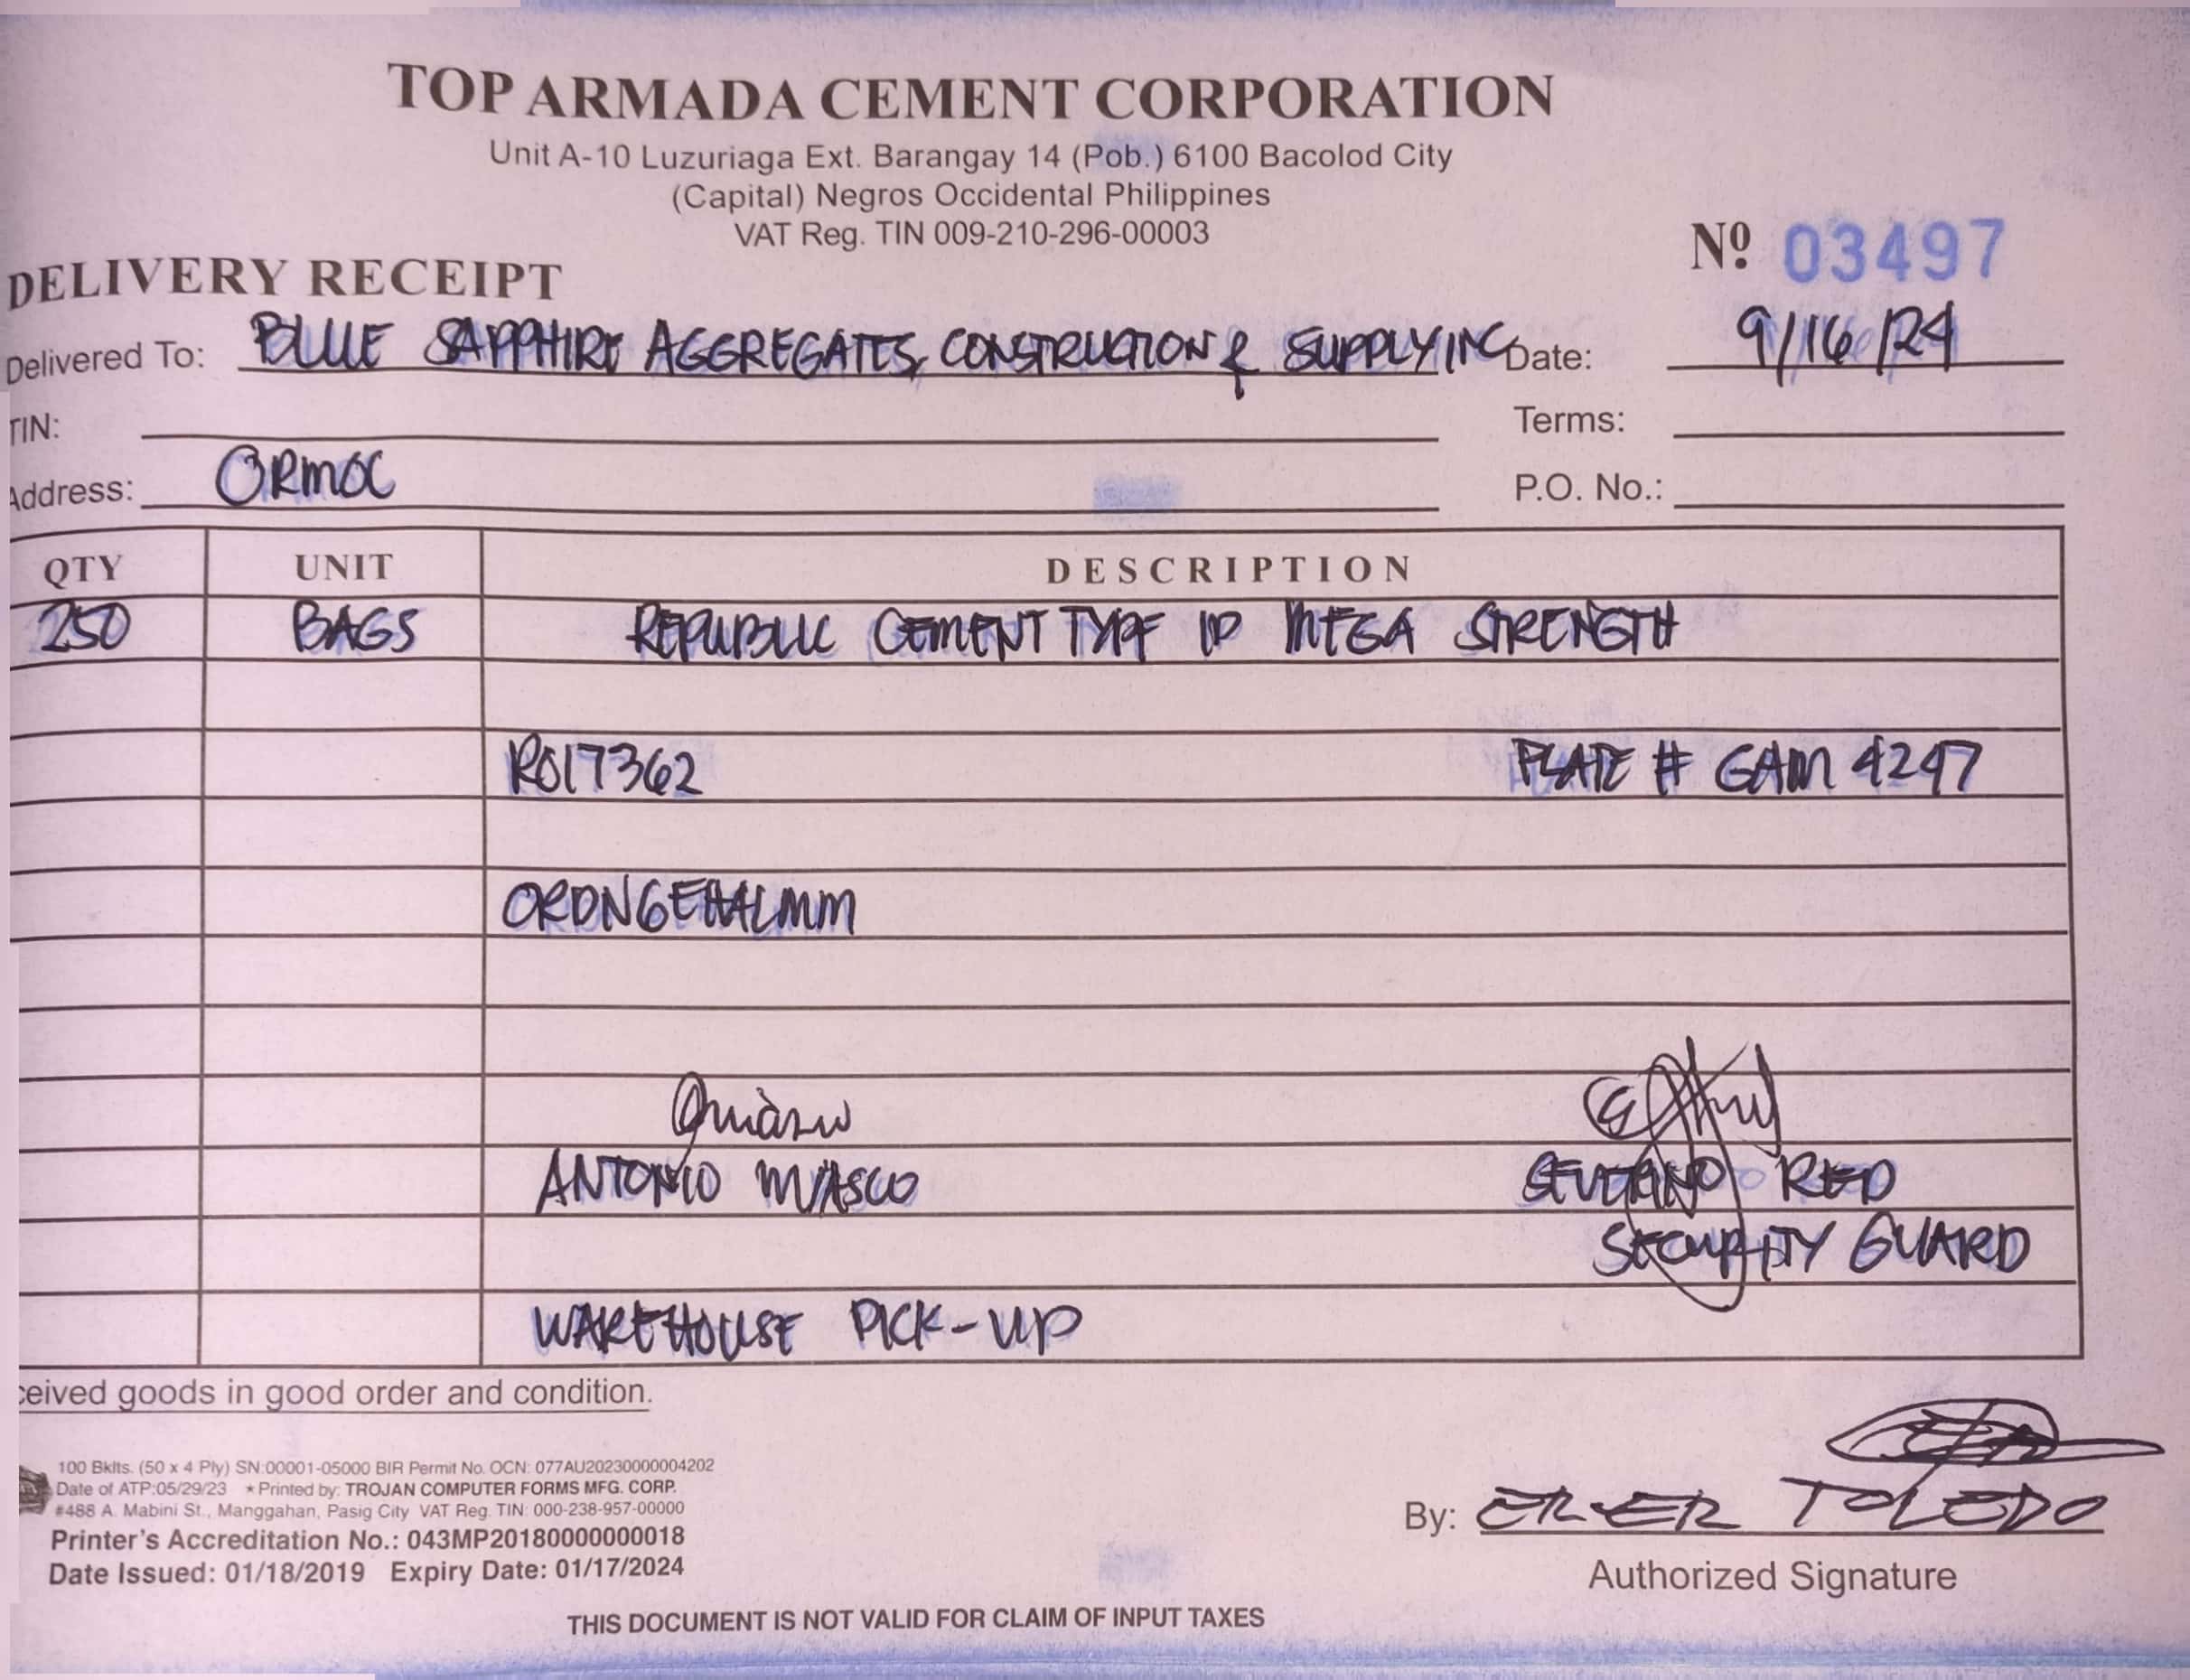 TOP ARMADA CEMENT CORPORATION
Unit A-10 Luzuriaga Ext. Barangay 14 (Pob.) 6100 Bacolod City
(Capital) Negros Occidental Philippines
VAT Reg. TIN 009-210-296-00003
Nº 03497
DELIVERY RECEIPT
Delivered To: BLUE SAPPHIRE AGGREGATES, CONSTRUCTION & SUPPLY INC Date: 9/16/24
TIN: Terms:
Address: ORMOC P.O. No.:
QTY UNIT DESCRIPTION
250 BAGS REPUBLIC CEMENT TYPE 1P MEGA STRENGTH
R017362 PLATE # GAM 4247
ORDNGEHALMM
ANTONIO MIASCO SEVERINO RED
SECURITY GUARD
WAREHOUSE PICK-UP
ceived goods in good order and condition.
100 Bklts. (50 x 4 Ply) SN:00001-05000 BIR Permit No. OCN: 077AU20230000004202
Date of ATP:05/29/23 ★ Printed by: TROJAN COMPUTER FORMS MFG. CORP.
#488 A. Mabini St., Manggahan, Pasig City VAT Reg. TIN: 000-238-957-00000
Printer's Accreditation No.: 043MP20180000000018
Date Issued: 01/18/2019 Expiry Date: 01/17/2024
By: TOLEDO
Authorized Signature
THIS DOCUMENT IS NOT VALID FOR CLAIM OF INPUT TAXES